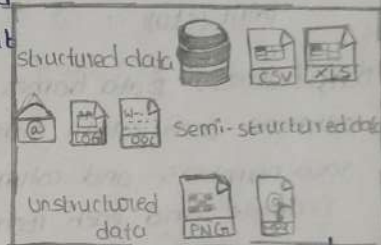 structured data CSV XLS
@ LOG DOC semi-structured data
unstructured
data PNG